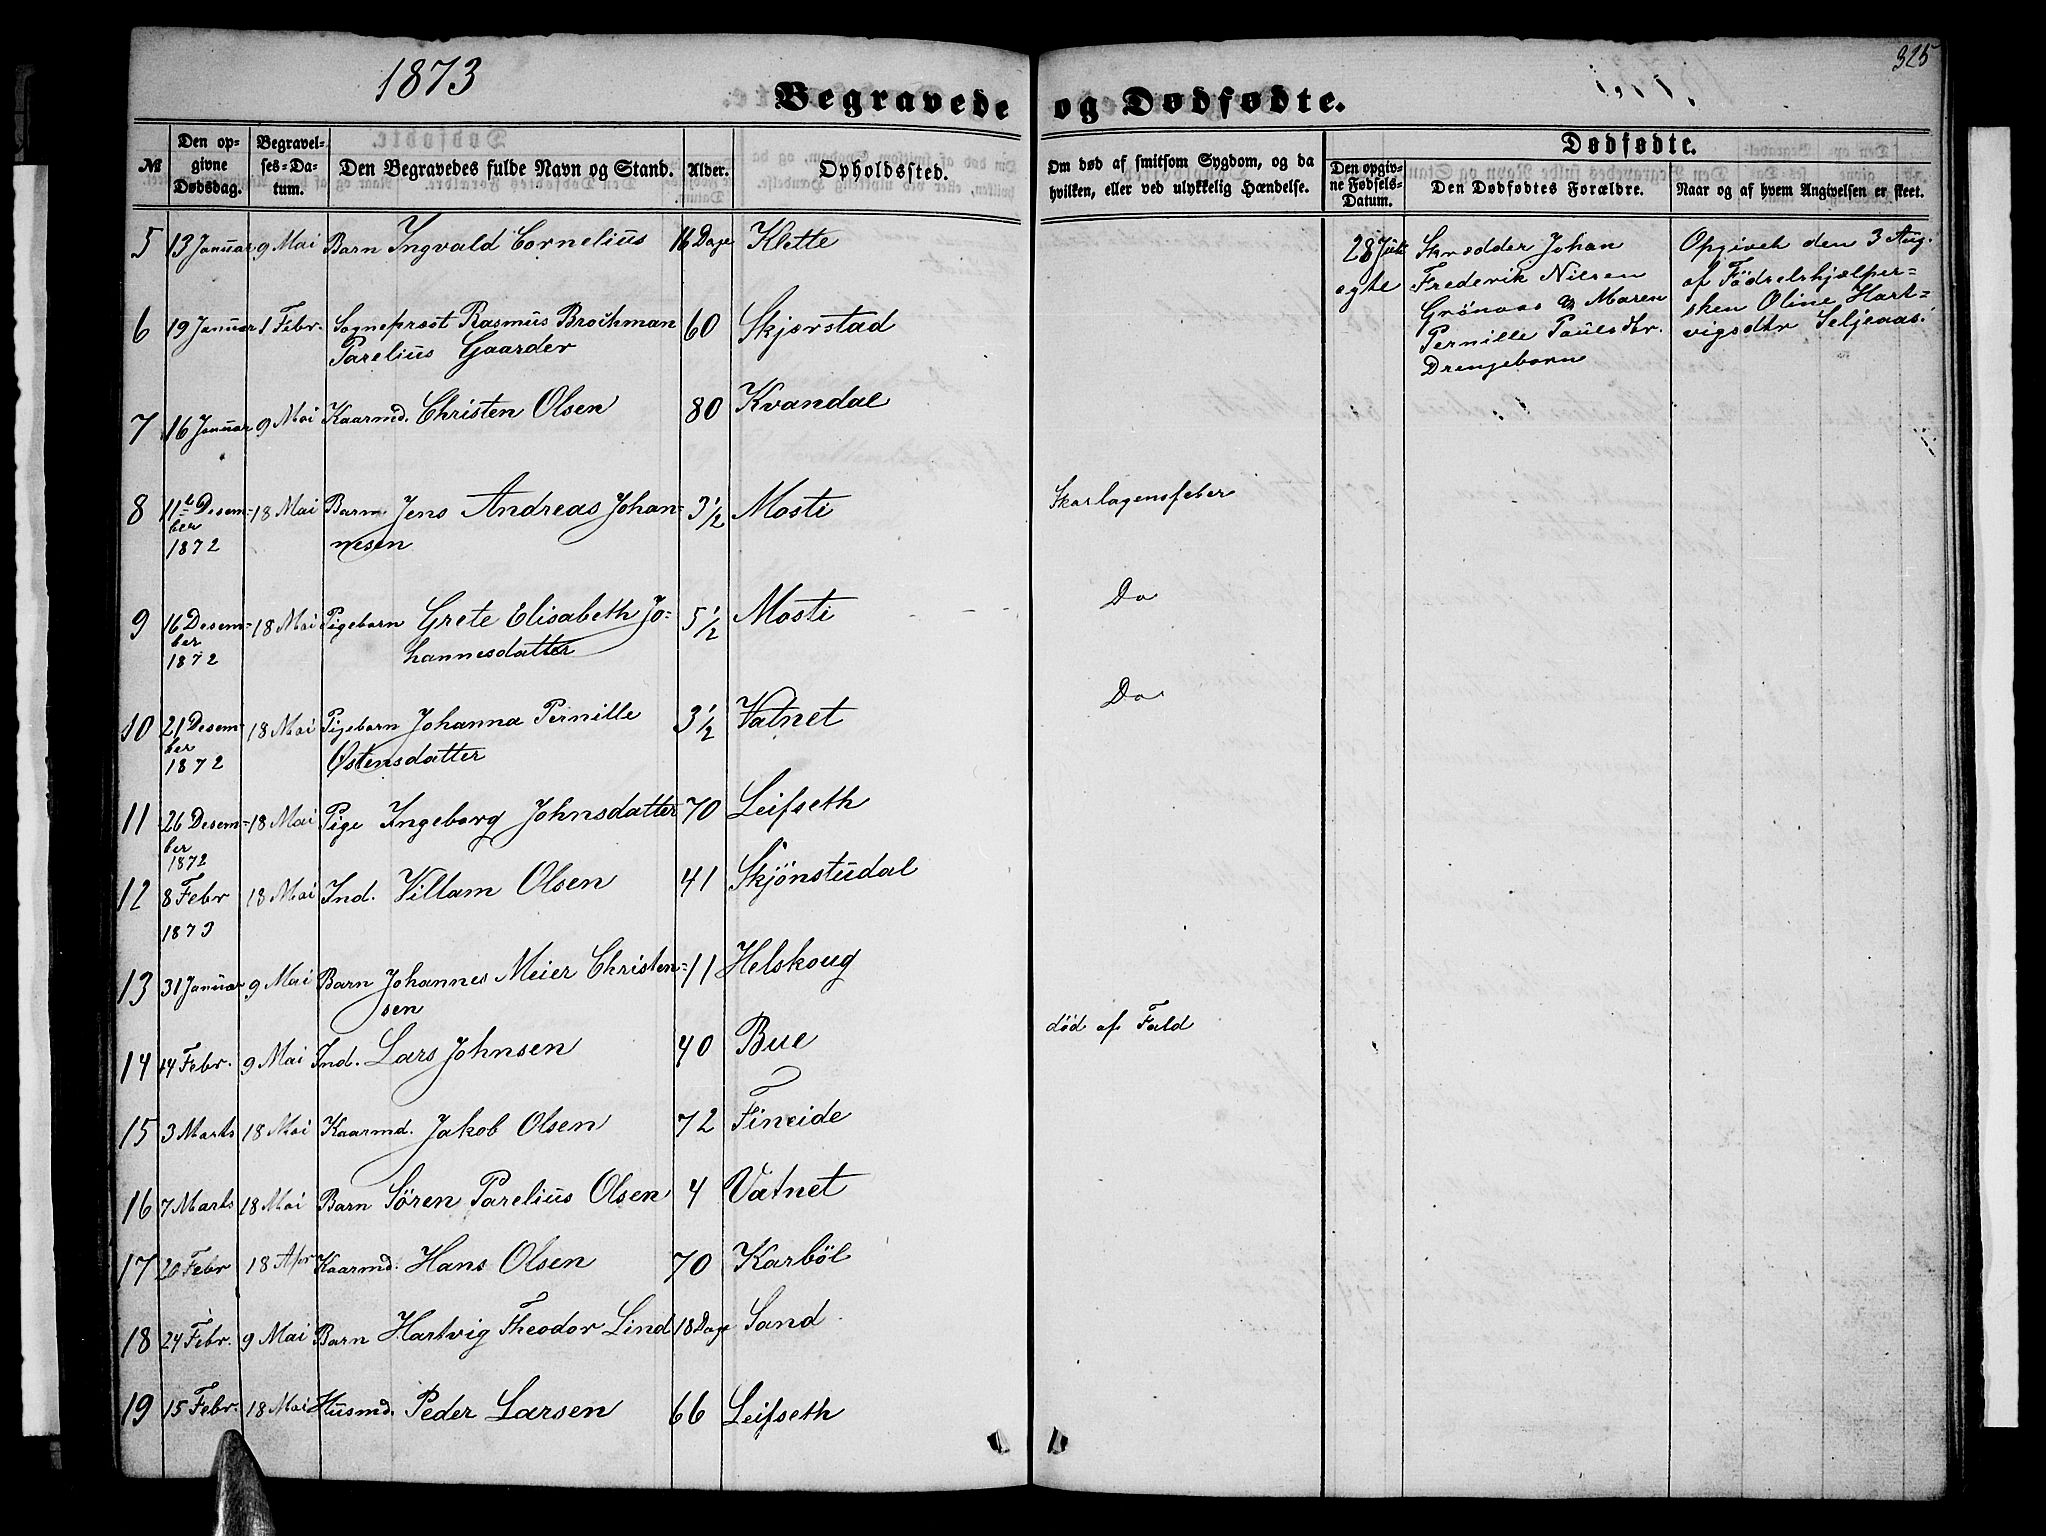 1873
325
Begravede og Dødfødte.
№
Den opgivne Dødsdag.
Begravelses-Datum.
Den Begravedes fulde Navn og Stand.
Alder.
Opholdssted.
Om død af smitsom Sygdom, og da hvilken, eller ved ulykkelig Hændelse.
Dødfødte.
Den opgivne Fødsels-Datum.
Den Dødfødtes Forældre.
Naar og af hvem Angivelsen er skeet.
5 13 Januar 9 Mai Barn Ingvald Cornelius 16 Dage Klette
6 19 Januar 1 Febr. Sognepræst Rasmus Brochman 60 Skjerstad
Parelius Gaarder
7 16 Januar 9 Mai Kaarmd. Christen Olsen 80 Kvandal
8 11te Desem= 18 Mai Barn Jens Andreas Johan= 3 1/2 Mosti Skarlagensfeber
ber nesen
1872
9 16 Desem= 18 Mai Pigebarn Grete Elisabeth Jo= 5 1/2 Mosti Do
ber hannesdatter
1872
10 21 Desem= 18 Mai Pigebarn Johanna Pernille 3 1/2 Vatnet Do
ber Østensdatter
1872
11 26 Desem= 18 Mai Pige Ingeborg Johnsdatter 70 Leifseth
ber
1872
12 8 Febr 18 Mai Ind. Villam Olsen 41 Skjönstudal
1873
13 31 Januar 9 Mai Barn Johannes Meier Christen= 11 Helskoug
sen
14 14 Febr. 9 Mai Ind. Lars Johnsen 40 Bue død af Fald
15 3 Marts 18 Mai Kaarmd. Jakob Olsen 72 Fineide
16 7 Marts 18 Mai Barn Sören Parelius Olsen 4 Vatnet
17 20 Febr 18 Apr Kaarmd. Hans Olsen 70 Karböl
18 24 Febr. 9 Mai Barn Hartvig Theodor Lind 18 Dage Sand
19 15 Febr. 18 Mai Husmd. Peder Larsen 66 Leifseth
28 Juli
egte
Skrædder Johan
Frederik Nilsen
Grönaas og Maren
Pernille Paulsdtr.
Drengebarn
Opgivet den 3 Aug.
af Födselshjælper=
sken Oline Hart=
vigsdtr Seljeaas.